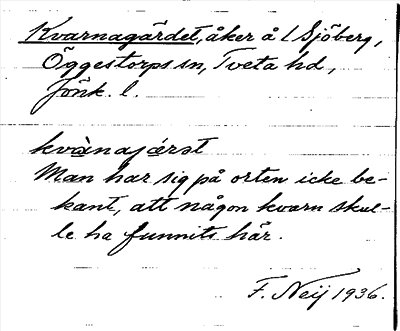 Kvarnagärdet, åker å 1 Sjöberg,
Öggestorps sn, Tveta hd,
Jönk. l.
kvànajǽrst
Man har sig på orten icke be-
kant, att någon kvarn skul-
le ha funnits här.
F. Neij 1936.